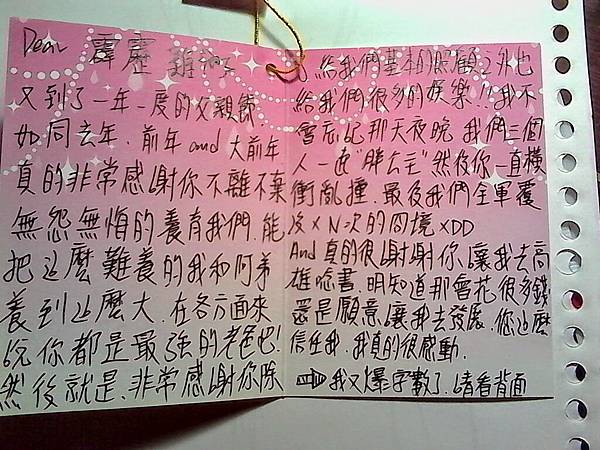 Dear 霹靂
又到了一年一度的父親節
如同去年、前年and大前年
真的非常感謝你不離不棄
無怨無悔的養育我們.能
把這麼難養的我和阿弟
養到這麼大.在各方面來
說你都是最強的老爸吧!
然後就是.非常感謝你除
了給我們基本的照顧之外也
給我們很多的娛樂!!我不
會忘記那天夜晚 我們三個
人一起"胖去王"然後你一直橫
衝亂撞.最後我們全軍覆
沒×N次的囧境×DD
And真的很謝謝你.讓我去高
雄唸書.明知道那會花很多錢
還是願意讓我去發展.您這麼
信任我.我真的很感動.
我又爆字數了.請看背面